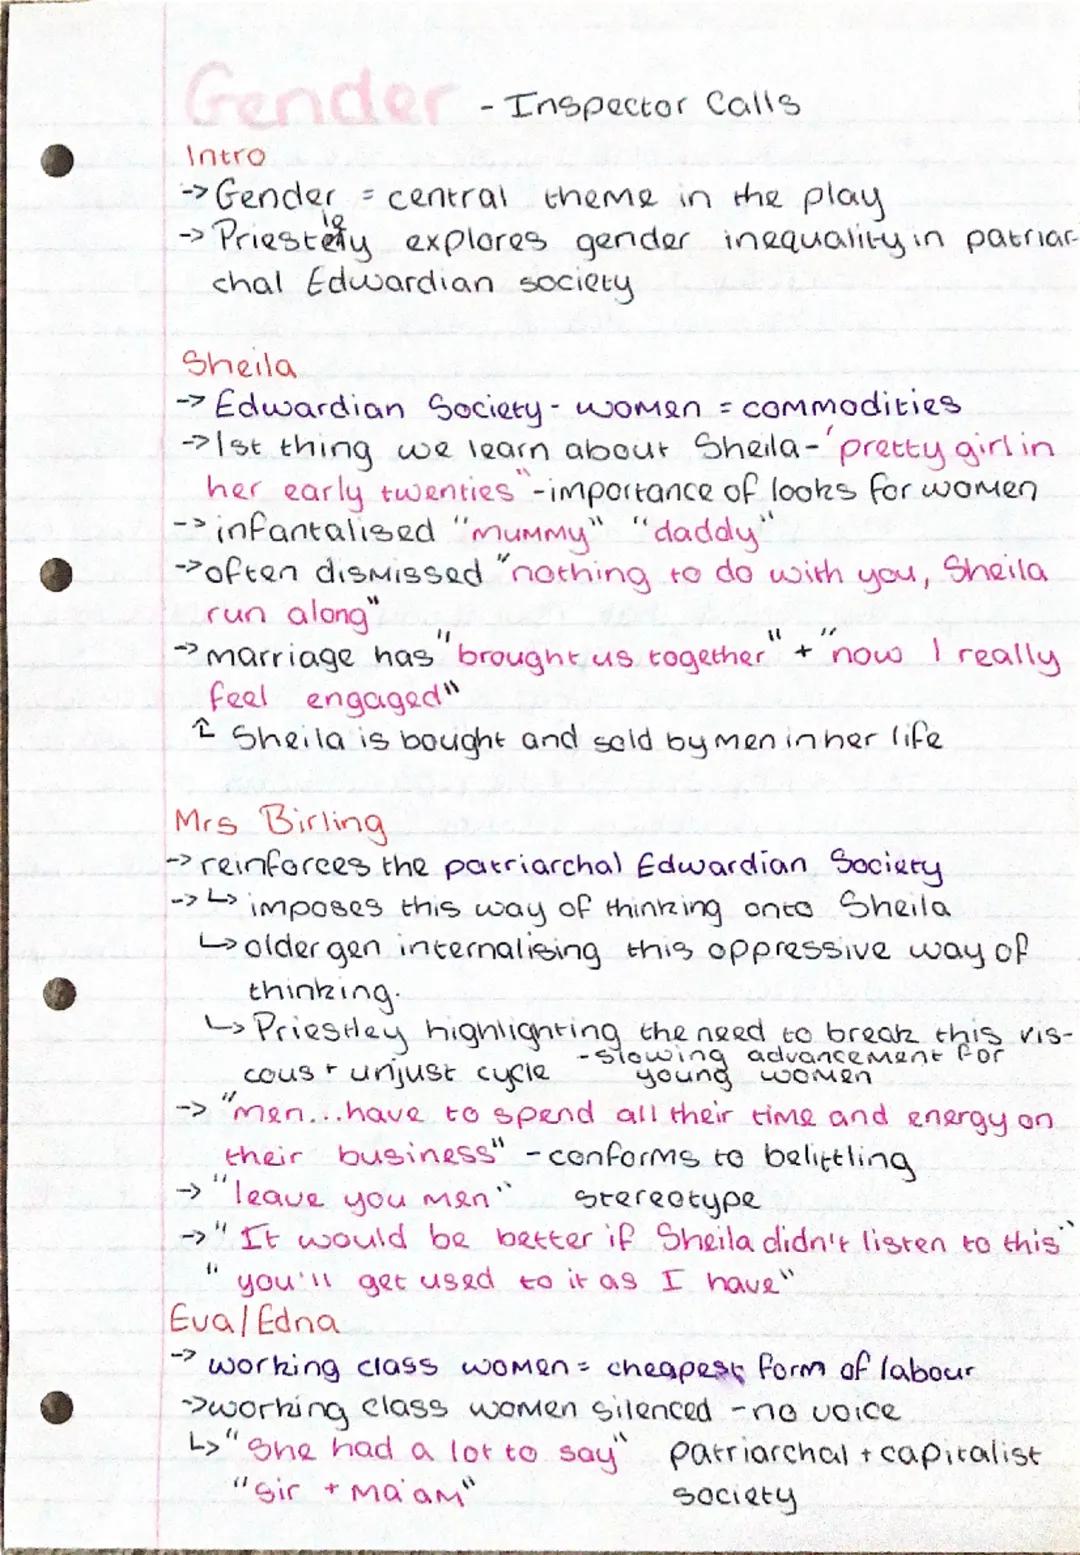 Gender - Inspector Calls
Intro
-> Gender = central theme in the play
-> Priestley explores gender inequality in patriar-
chal Edwardian society
Sheila
-> Edwardian Society - women = commodities
-> 1st thing we learn about Sheila - 'pretty girl in
her early twenties" - importance of looks for women
-> infantalised "mummy" "daddy"
-> often dismissed "nothing to do with you, Sheila
run along"
-> marriage has "brought us together" + "now I really
feel engaged"
Sheila is bought and sold by men in her life
Mrs Birling
-> reinforces the patriarchal Edwardian Society
-> ↳ imposes this way of thinking onto Sheila
↳ older gen internalising this oppressive way of
thinking.
↳ Priestley highlighting the need to break this vis-
cous + unjust cycle - slowing advancement for
young women
-> "men...have to spend all their time and energy on
their business" - conforms to belittling
stereotype
-> "leave you men"
-> "It would be better if Sheila didn't listen to this"
"you'll get used to it as I have"
Eva/Edna
-> working class women = cheapest form of labour
-> working class women silenced - no voice
↳ "She had a lot to say" patriarchal + capitalist
"sir + ma'am" society